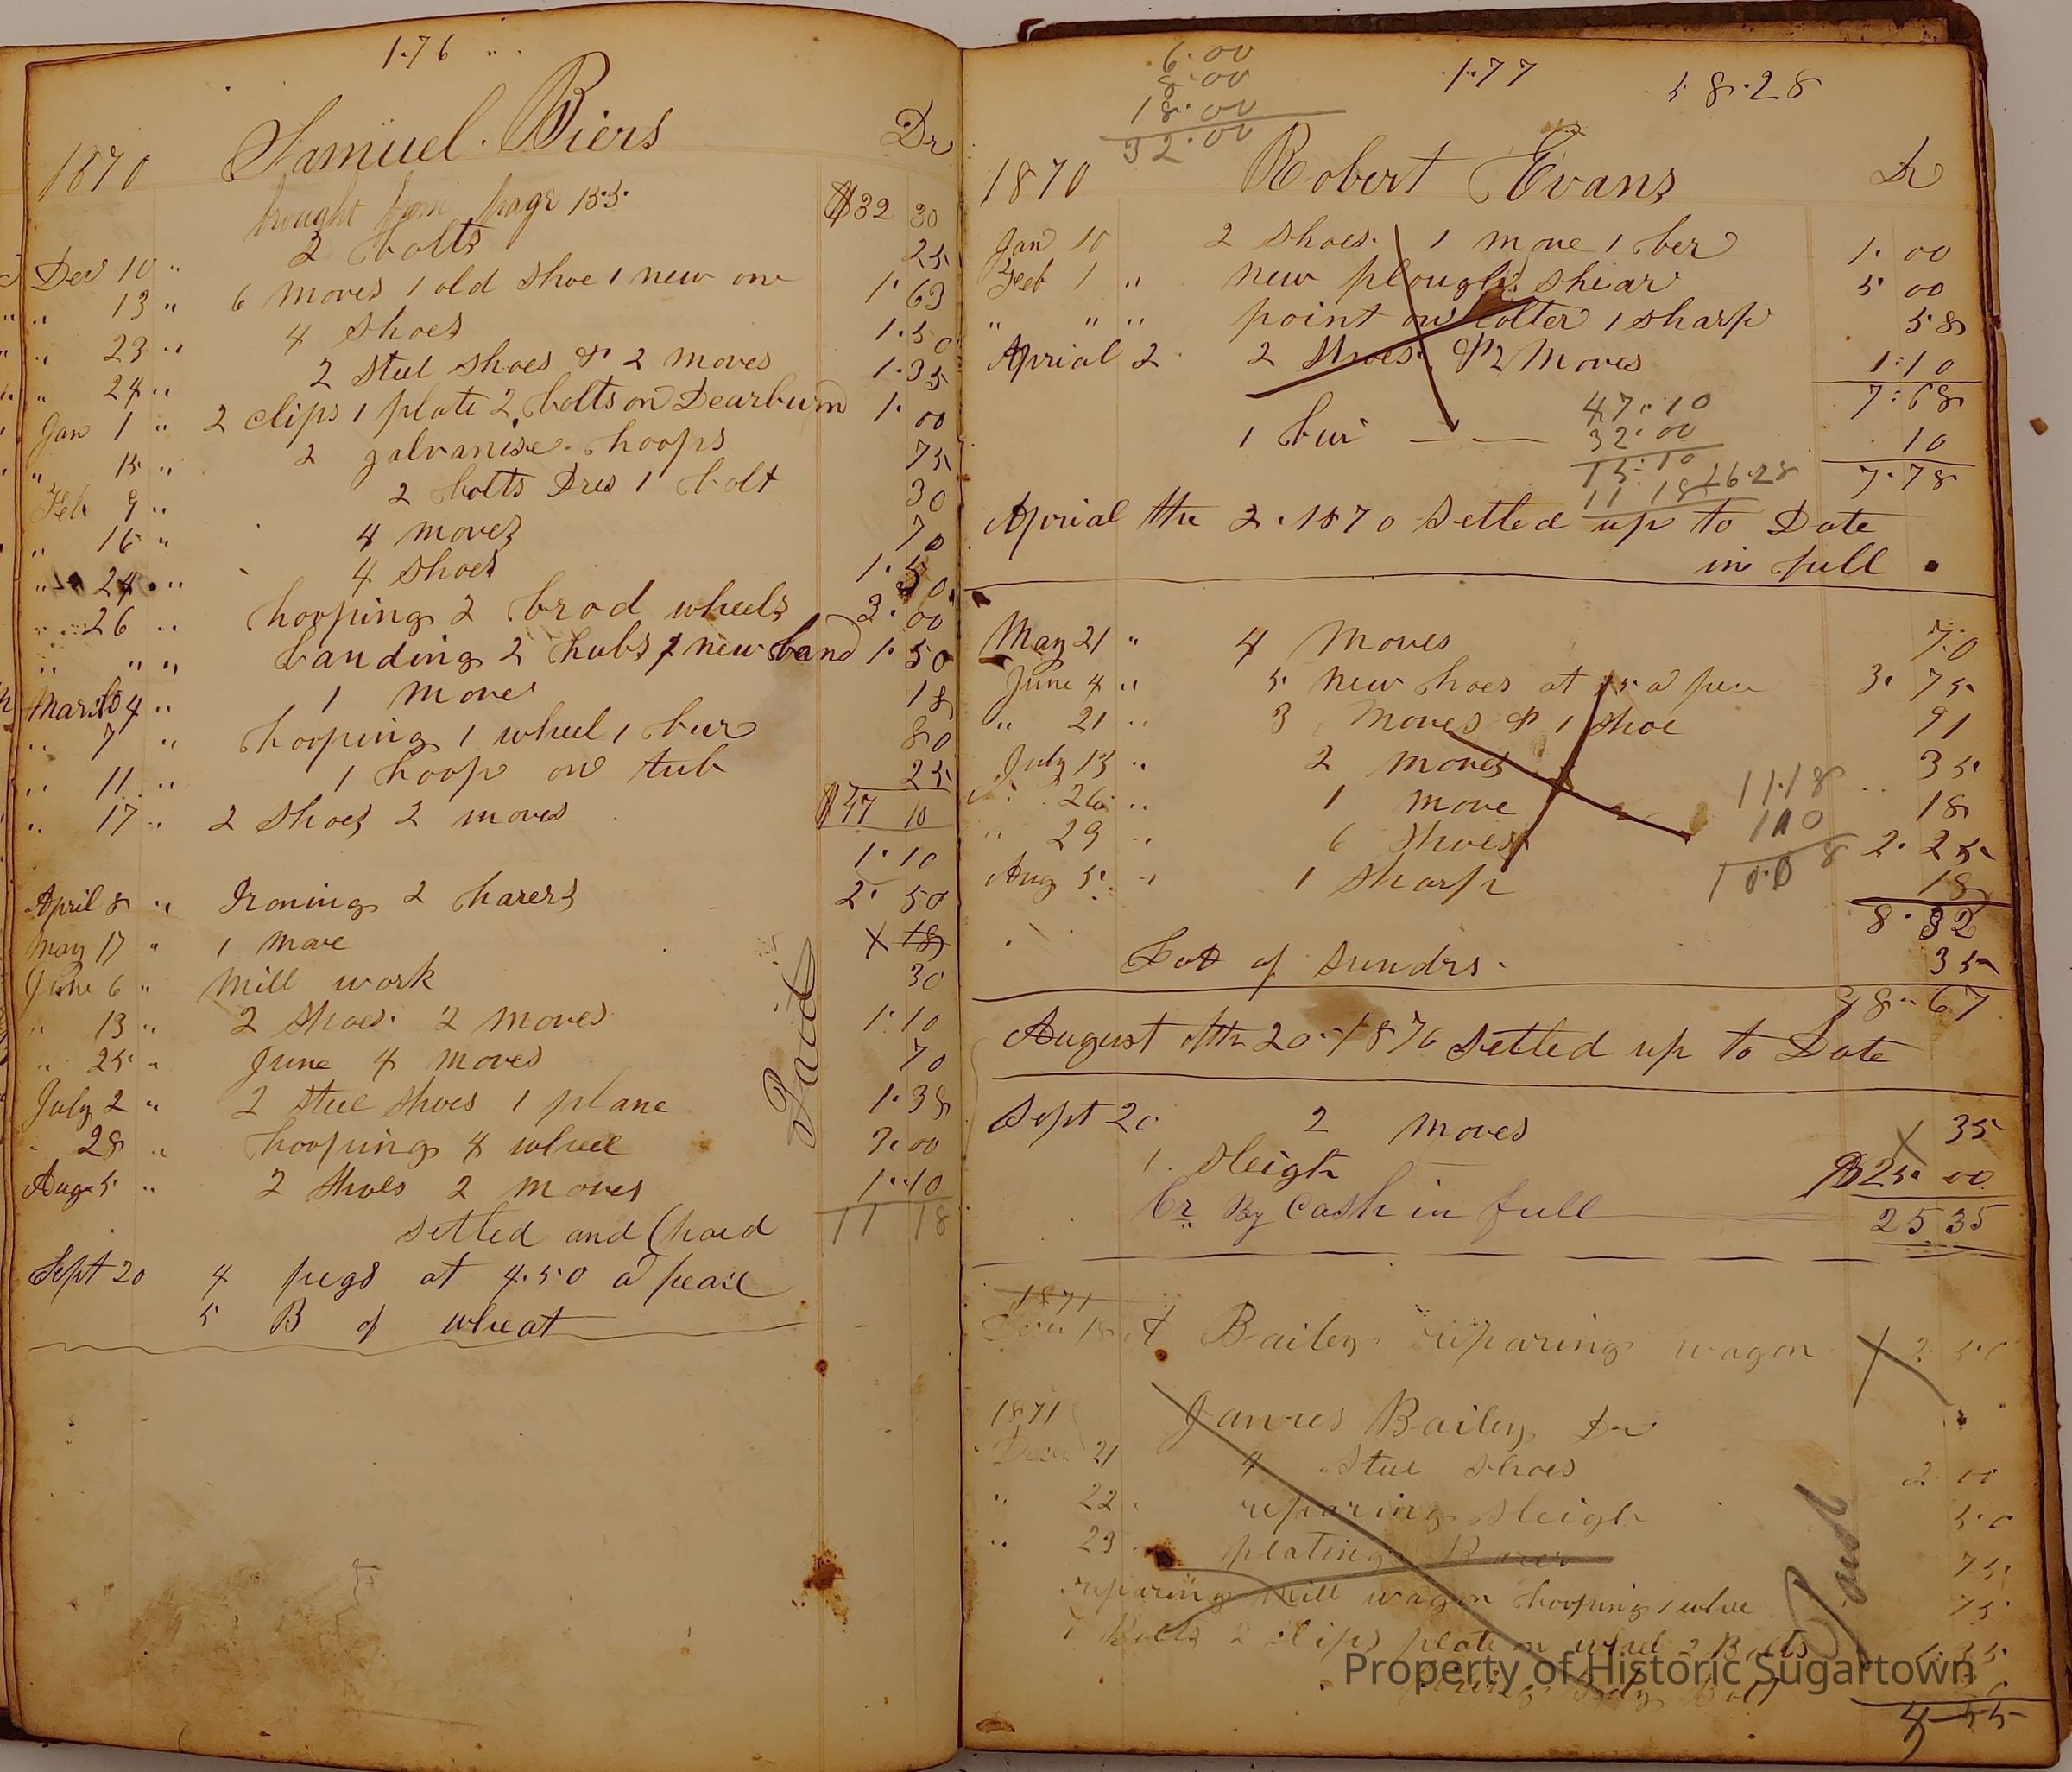 176
Samuel. Biers Dr
1870
brought from page 155. $32 30
Dec 10 " 2 bolts 25
" 13 " 6 moves 1 old shoe 1 new on 1. 63
" 23 " 4 shoes 1. 50
" 24 " 2 steel shoes & 2 moves 1. 35
Jan 1 " 2 clips 1 plate 2 bolts on Dearburn 1. 00
" 15 " 2 galvanise. hoops 75
Feb 9 " 2 bolts Dres 1 bolt 30
" 16 " 4 moves 70
" 24 " 4 shoes 1. 50
" 26 " hooping 2 brod wheels 3. 00
" " " banding 2 hubs 1 new band 1. 50
March 4 " 1 move 18
" 7 " hooping 1 wheel 1 bur 80
" 11 " 1 hoop on tub 25
$47 10
" 17 " 2 shoes 2 moves 1. 10
April 8 " Ironing 2 harers 2. 50
May 17 " 1 move X 18
June 6 " Mill work 30
" 13 " 2 shoes. 2 moves 1. 10
" 25 " June 4 moves 70
July 2 " 2 steel shoes 1 plane 1. 38
" 28 " hooping 4 wheel 3. 00
Aug 5 " 2 shoes 2 moves 1. 10
Paid
settled and 11 18
Sept 20 4 pigs at 4.50 a peace
5 B of wheat
6.00
8.00
18.00
32.00
177
58.28
1870 Robert Evans Dr
Jan 10 2 shoes. 1 move 1 ber 1. 00
Feb 1 " new plough shear 5 00
" " " point on colter 1 sharp 58
Aprial 2 2 shoes. & 2 Moves 1. 10
7. 68
1 bur 10
47.10
32.00
15.10
11 18
26.28
7. 78
Aprial the 2. 1870 Setled up to Date
in full.
May 21 " 4 Moves 70
June 4 " 5 new shoes at 75 a 3. 75
" 21 " 3 Moves & 1 shoe 91
July 13 " 2 moves 35
" 26 " 1 move 18
" 29 " 6 shoes 2. 25
Aug 5. " 1 sharp 18
11.18
8. 32
Lot of sundrs. 35
8. 67
August the 20. 1870 Setled up to Date
Sept 20. 2 moves X 35
1. sleigh $25. 00
Cr By Cash in full 25 35
1871
18 Bailey reparing wagon X 2 50
1871 James Bailey Dr
21 4 steel shoes 2 00
" 22 reparing sleigh 50
" 23 plating 75
reparing Mill wagon hooping 1 whee 75
7 Bolts 2 clips plate on wheel 2 Bolts 1. 35
Body Bolt
4 55
Paid
Property of Historic Sugartown